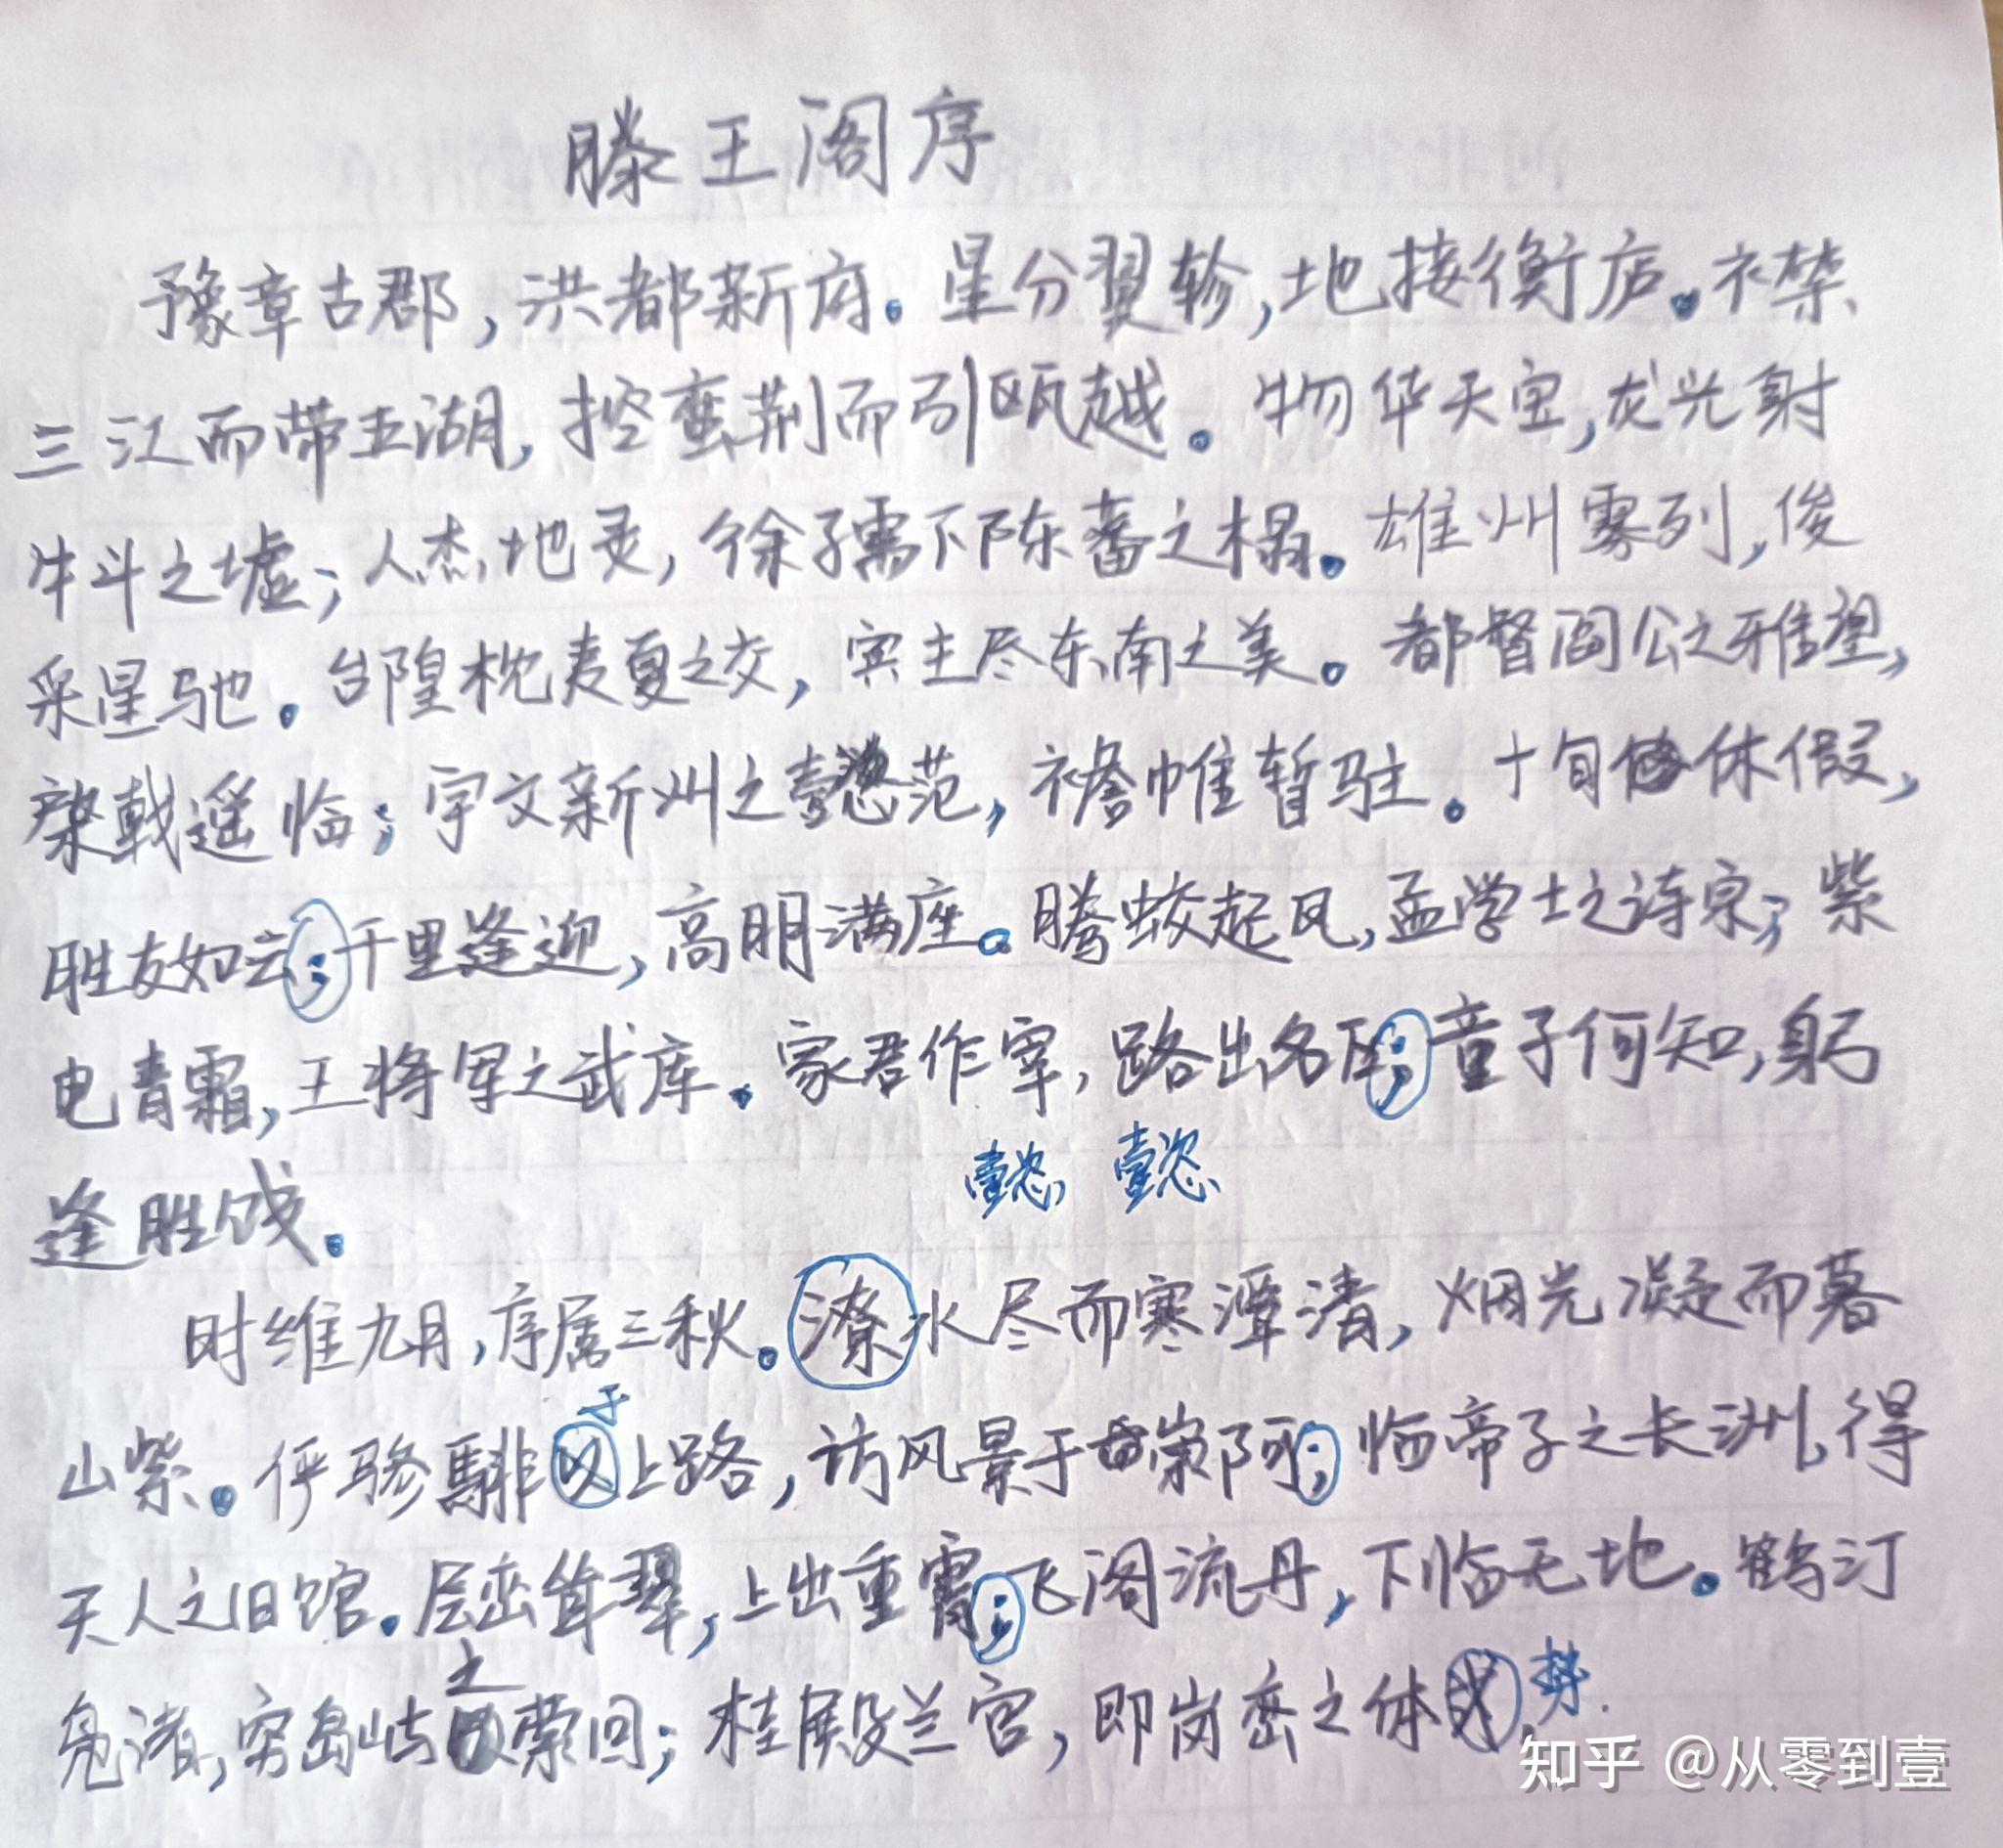 滕王阁序
豫章古郡，洪都新府。星分翼轸，地接衡庐。衣襟
三江而带五湖，控蛮荆而引瓯越。物华天宝，龙光射
牛斗之墟；人杰地灵，徐孺下陈蕃之榻。雄州雾列，俊
采星驰。台隍枕夷夏之交，宾主尽东南之美。都督阎公之雅望，
棨戟遥临；宇文新州之懿范，襜帷暂驻。十旬休假，
胜友如云；千里逢迎，高朋满座。腾蛟起凤，孟学士之诗宗；紫
电青霜，王将军之武库。家君作宰，路出名区；童子何知，躬
懿 懿
逢胜饯。
时维九月，序属三秋。潦水尽而寒潭清，烟光凝而暮
于
山紫。俨骖騑上路，访风景于崇阿；临帝子之长洲，得
天人之旧馆。层峦耸翠，上出重霄；飞阁流丹，下临无地。鹤汀
之
凫渚，穷岛屿萦回；桂殿兰宫，即岗峦之体势.
知乎 @从零到壹